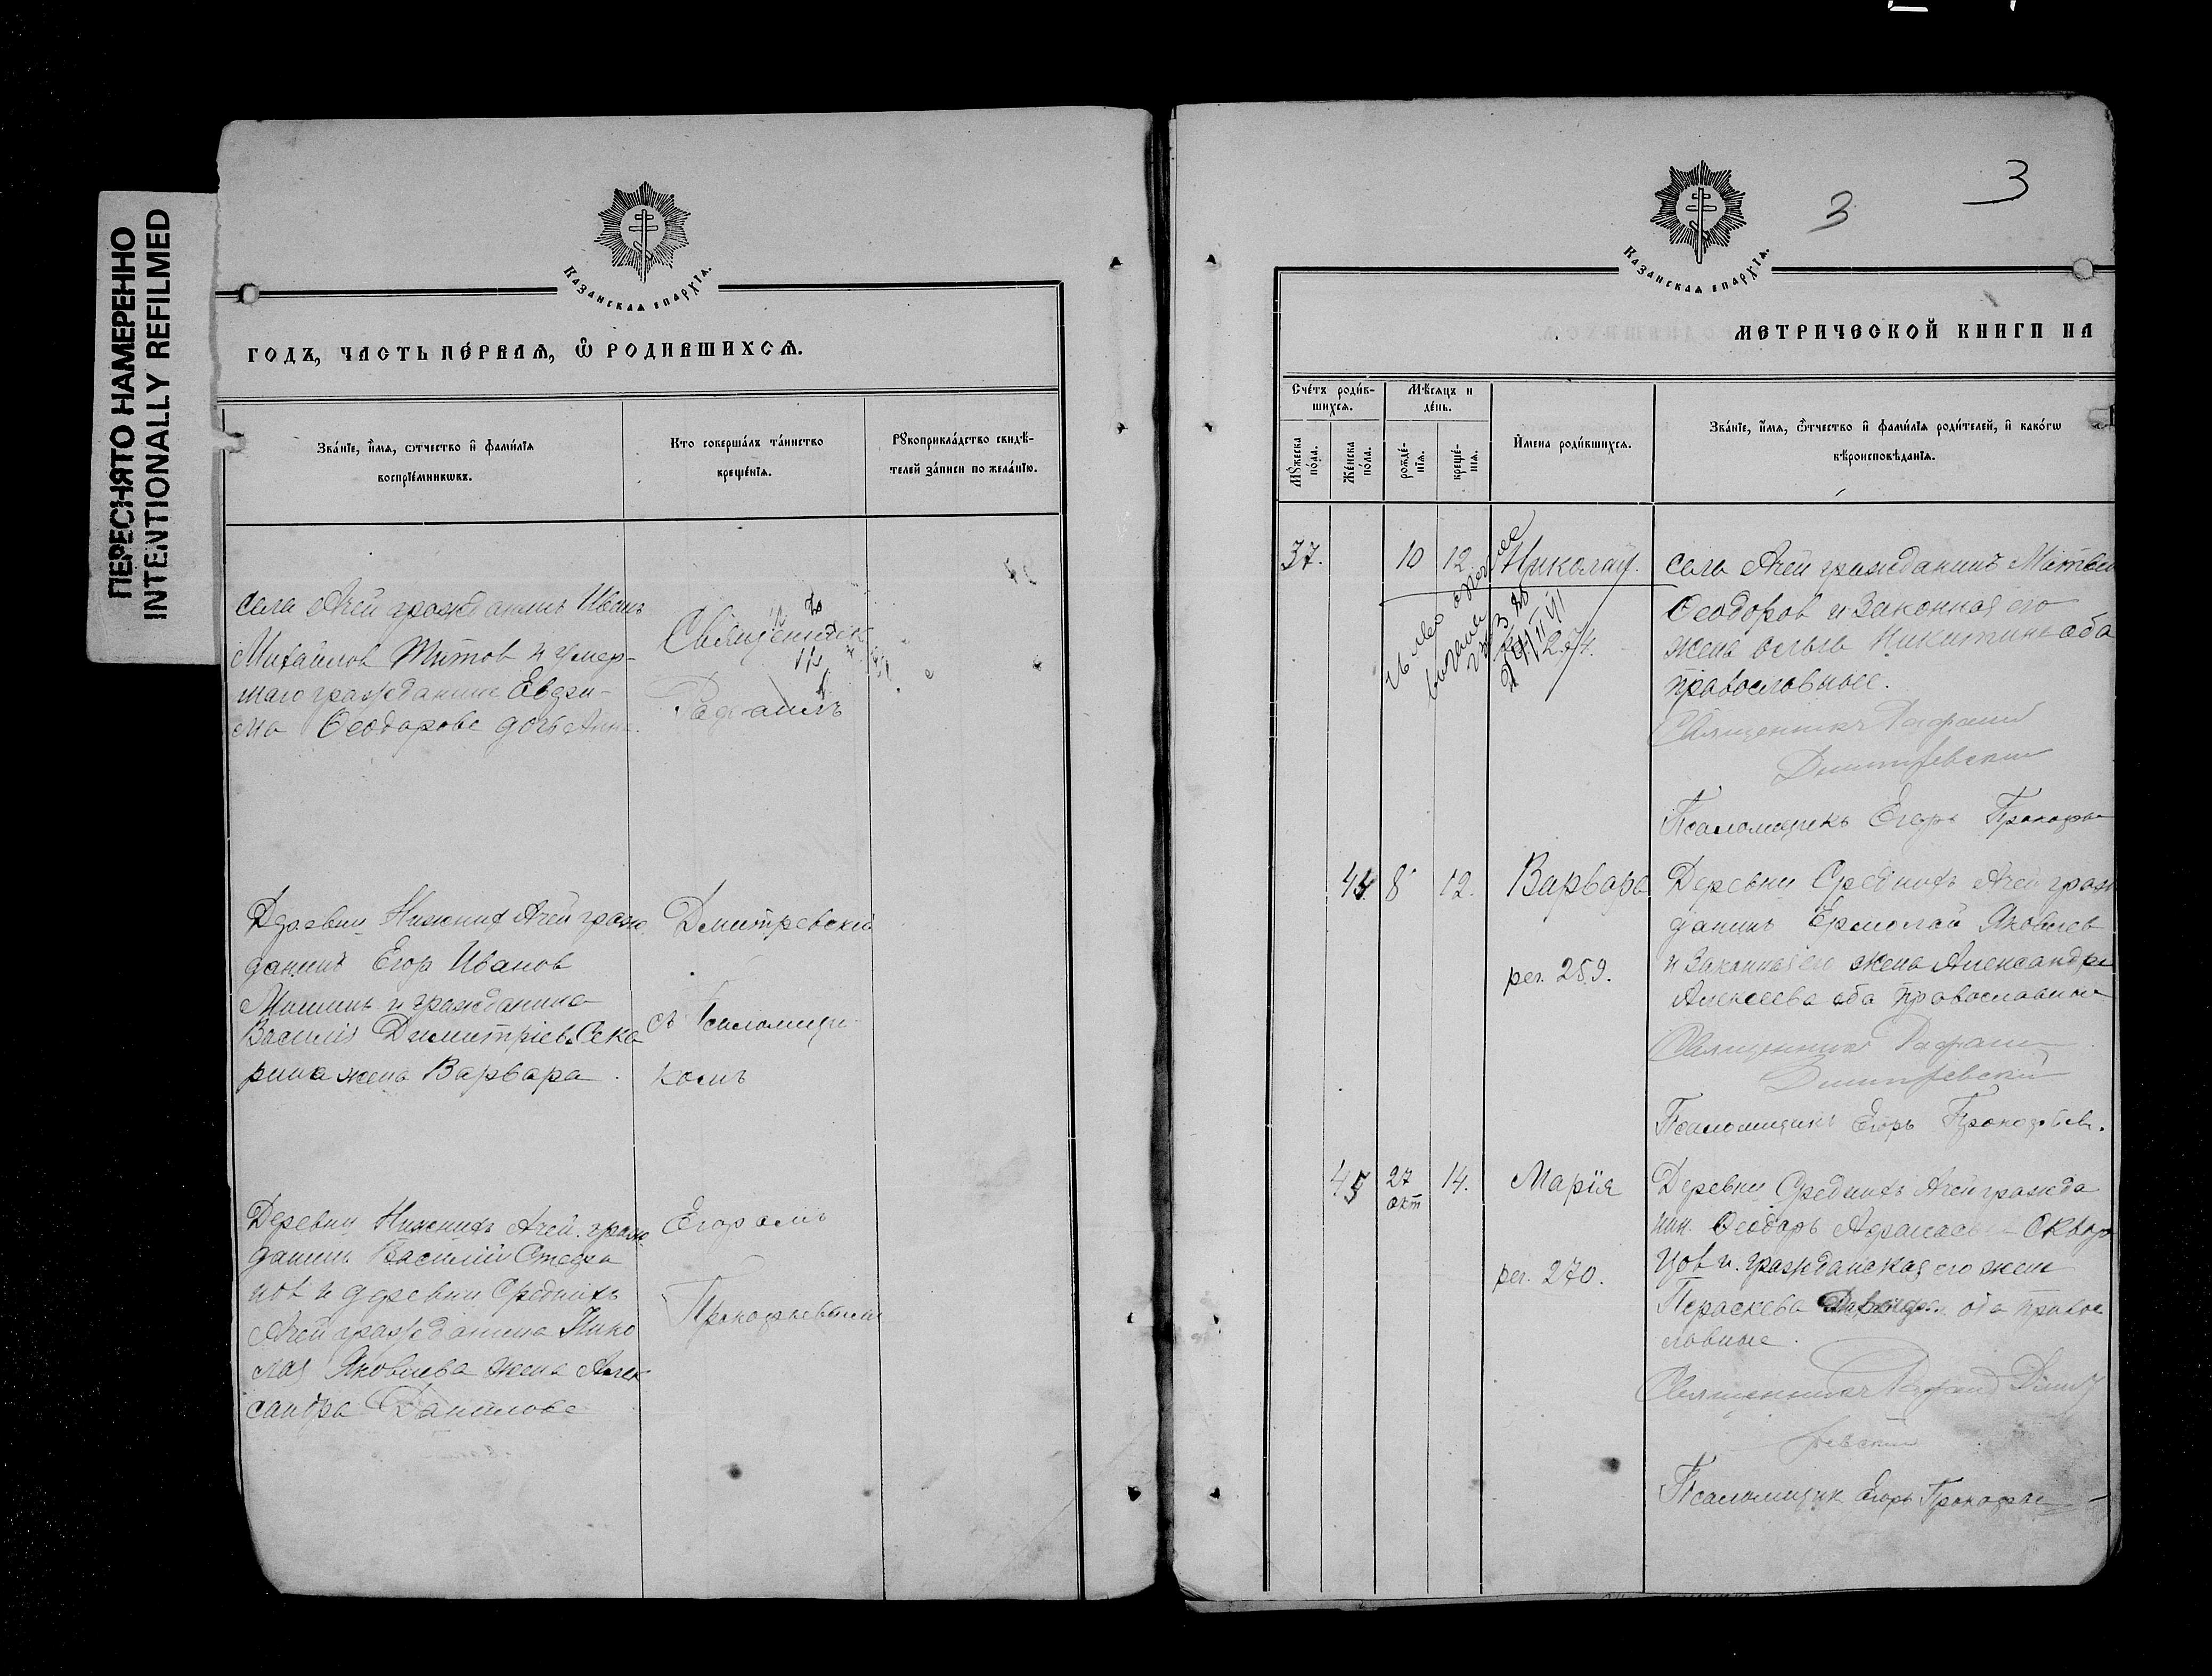 ПЕРЕСНЯТО НАМЕРЕННО
INTENTIONALLY REFILMED
КАЗАНСКАѦ ЕПАРХІѦ.
ГОДЪ, ЧАСТЬ ПЕ́РВАѦ, Ѿ РОДИВШИХСѦ.
Зва́нїе, и҆́мѧ, ѻ҆́тчество и҆ фами́лїѧ
воспрїе́мникѡвъ.
Кто соверша́лъ та́инство
креще́нїѧ.
Рꙋкоприкла́дство свидѣ́-
телей за́писи по жела́нїю.
села Ачей гражданинъ Иванъ
Михайлов Титов и умер-
шаго гражданина Евфи-
ма Ѳеодорова дочь Анна.
Священник
Рафаилъ
Деревни Нижних Ачей граж
данинъ Егор Иванов
Мишинъ и гражданина
Василія Димитріева Сека
рина жена Варвара.
Дмитревский
съ Псаломщи-
комъ
Деревни Нижнихъ Ачей граж
данинъ Василий Стефа
нов и деревни Среднихъ
Ачей гражданина Нико
лая Яковлева жена Алек
сандра Данилова
Егоромъ
Прокофьевым
3
3
КАЗАНСКАѦ ЕПАРХІѦ.
МЕТРИЧЕСКОЙ КНИГИ НА
Сче́тъ роди́в-
шихсѧ.
Мѣ́сѧцъ и
де́нь.
Мꙋ́жеска
по́ла.
Же́нска
по́ла.
рожде́-
нїѧ.
креще́-
нїѧ.
И҆мена̀ роди́вшихсѧ.
Зва́нїе, и҆́мѧ, ѻ҆́тчество и҆ фами́лїѧ роди́телей, и҆ како́гѡ
вѣроисповѣ́данїѧ.
37. 10 12. Николай.
274.
села Ачей гражданинъ Матвей
Ѳеодоров и Законная его
жена Никитина оба
православные.
Священникъ Рафаил
Димитревский
Псаломщикъ Егоръ Прокофье
44. 8 12. Варвара
рег. 259.
Деревни Среднихъ Ачей граж
данинъ Ермолай Яковлев
и Законная его жена Александра
Алексеева оба православные
Священник Рафаил
Димитревский
Псаломщикъ Егоръ Прокофьев.
45 27 окт 14. Марїя
рег. 270.
Деревни Среднихъ Ачей гражда
нин Ѳеодоръ Афанасьев Сквор
цов и гражданская его жена
Параскева оба правос
лавные.
Священникъ Рафаил Димит
ревский
Псаломщик Егоръ Прокофье